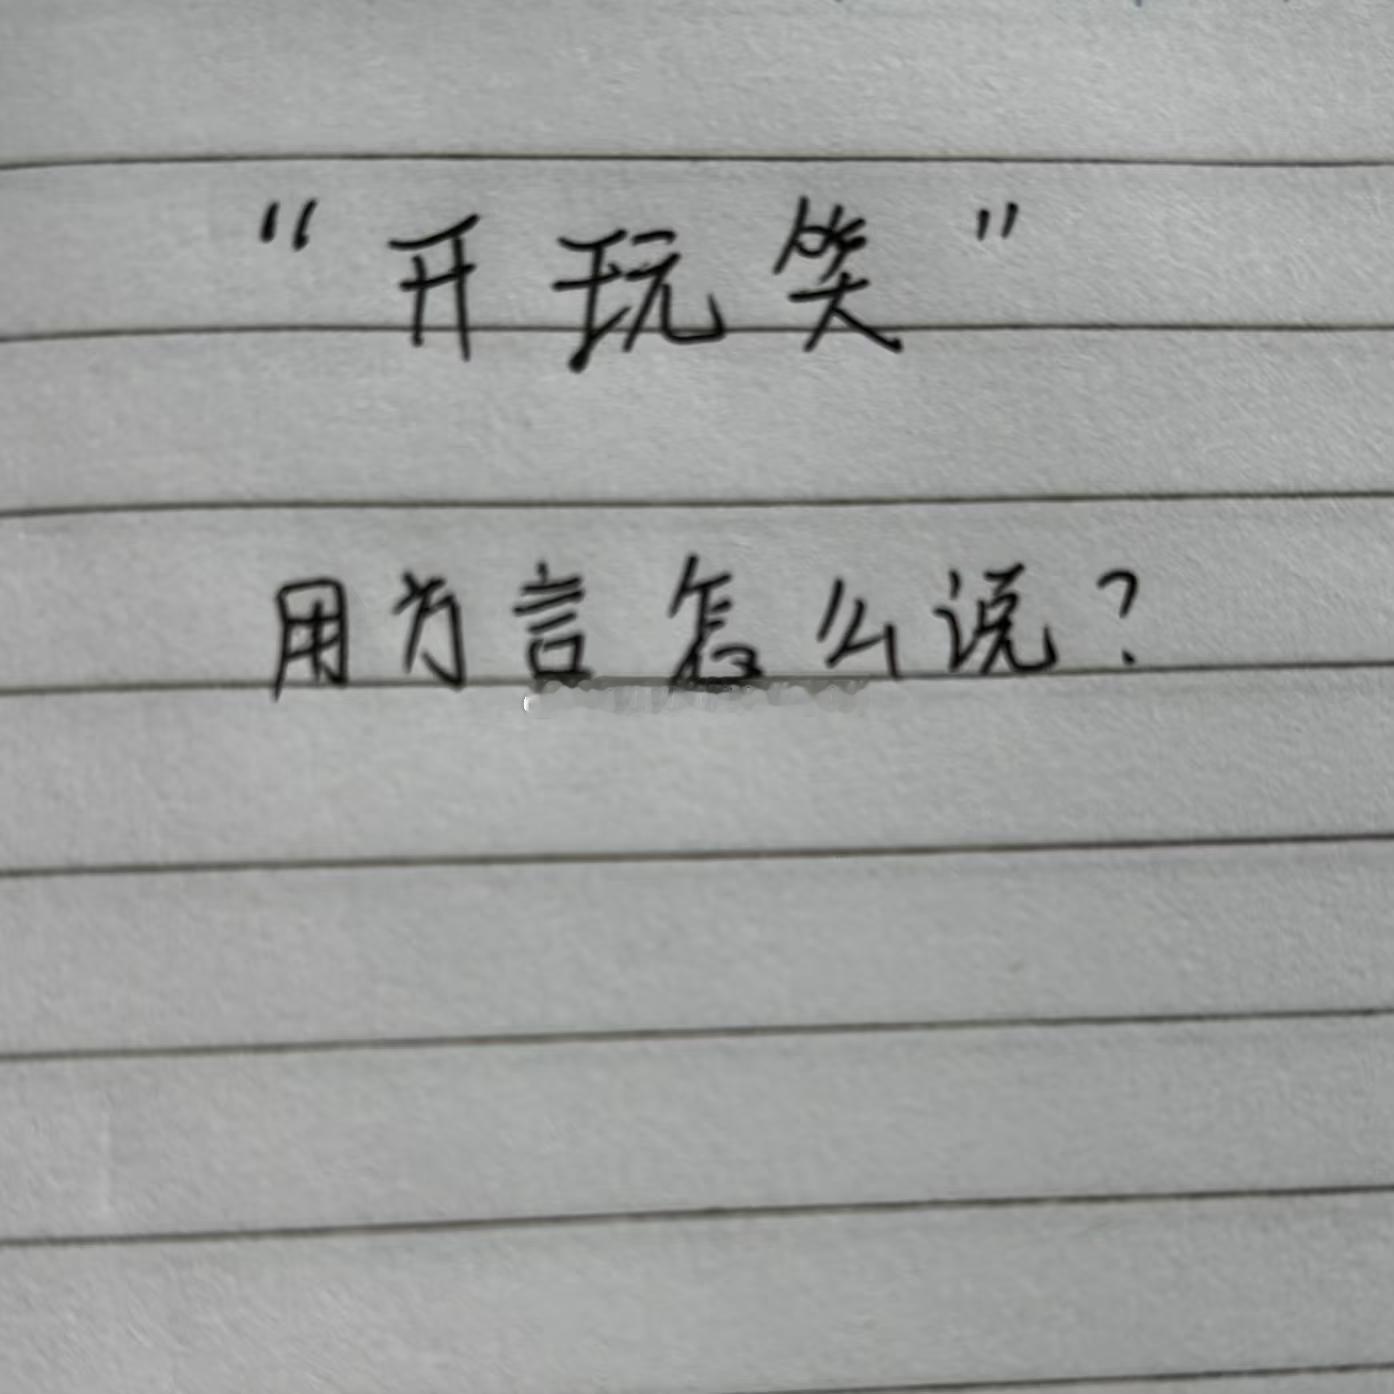 “开玩笑”
用方言怎么说?